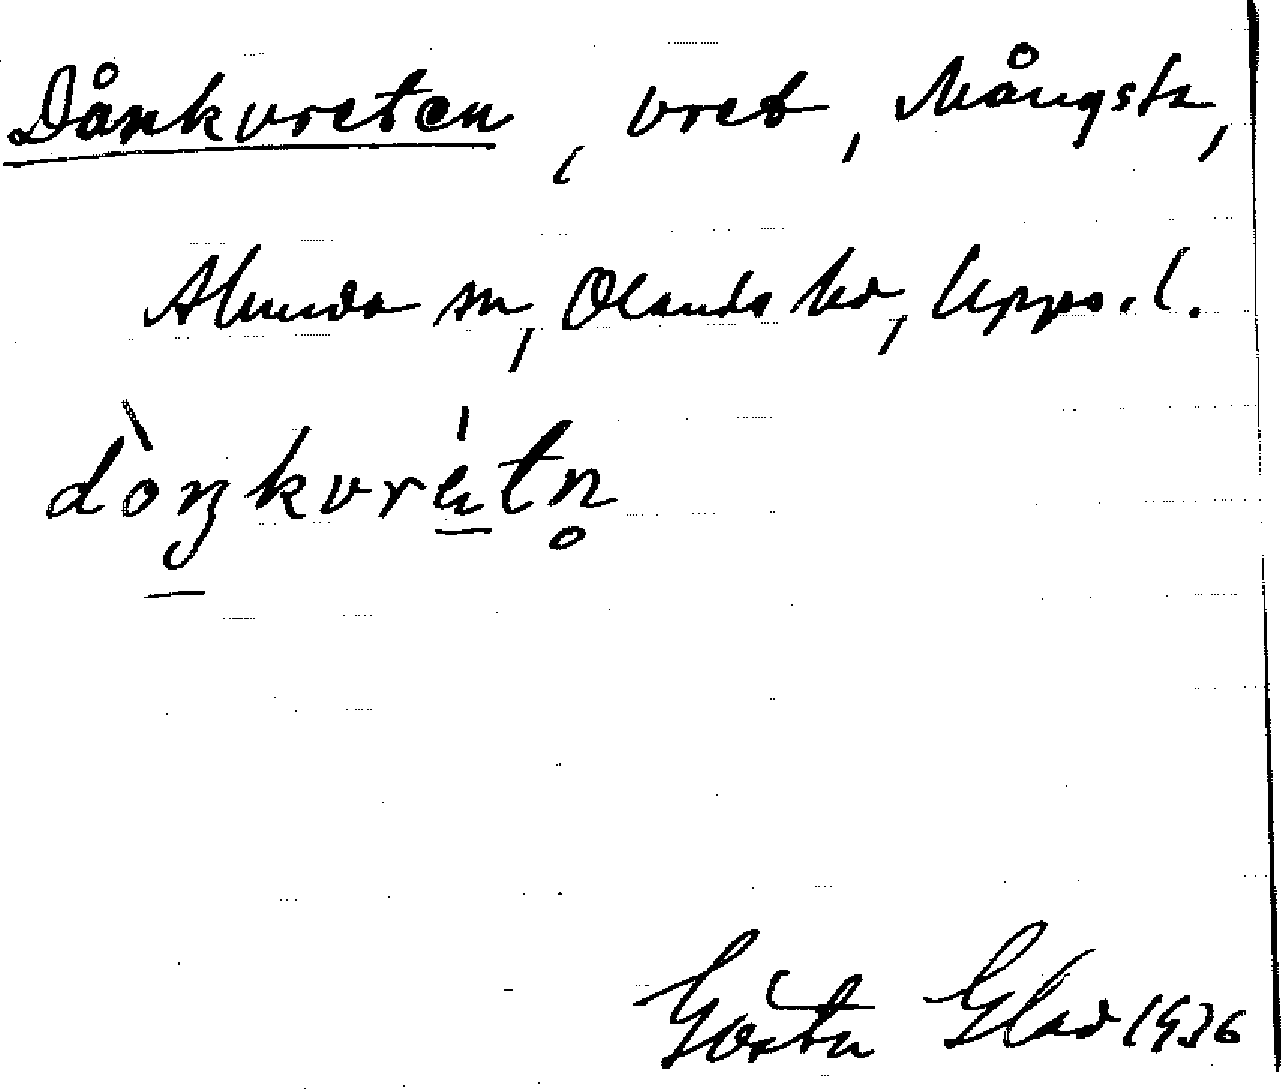 Dånkvreten, vret, Mångsta,
Alunda sn, Olands hd, Upps. l.
dòŋkvrétn̥
Gösta Glad 1936